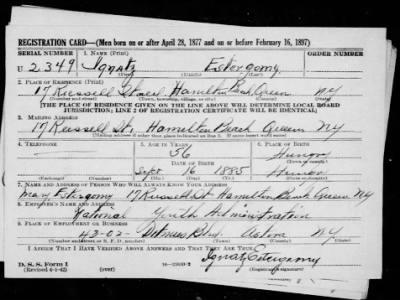 REGISTRATION CARD—(Men born on or after April 28, 1877 and on or before February 16, 1897)
SERIAL NUMBER 1. NAME (Print) ORDER NUMBER
U 2349 Ignatz Estergomy
2. PLACE OF RESIDENCE (Print)
17 Russell Street Hamilton Beach Queen NY
THE PLACE OF RESIDENCE GIVEN ON THE LINE ABOVE WILL DETERMINE LOCAL BOARD
JURISDICTION; LINE 2 OF REGISTRATION CERTIFICATE WILL BE IDENTICAL
3. MAILING ADDRESS
17 Russell St. Hamilton Beach Queen NY
4. TELEPHONE 5. AGE IN YEARS 6. PLACE OF BIRTH
56 Hungr
DATE OF BIRTH
Sept 16 1885 Hungr
7. NAME AND ADDRESS OF PERSON WHO WILL ALWAYS KNOW YOUR ADDRESS
Mary Estergomy 17 Russell St Hamilton Beach Queen NY
8. EMPLOYER'S NAME AND ADDRESS
National Youth Administration
9. PLACE OF EMPLOYMENT OR BUSINESS
43-02 Ditmars Blvd. Astoria NY
I AFFIRM THAT I HAVE VERIFIED ABOVE ANSWERS AND THAT THEY ARE TRUE.
D. S. S. Form 1
(Revised 4-1-42) (over)
Ignatz Estergomy
(Registrant's signature)